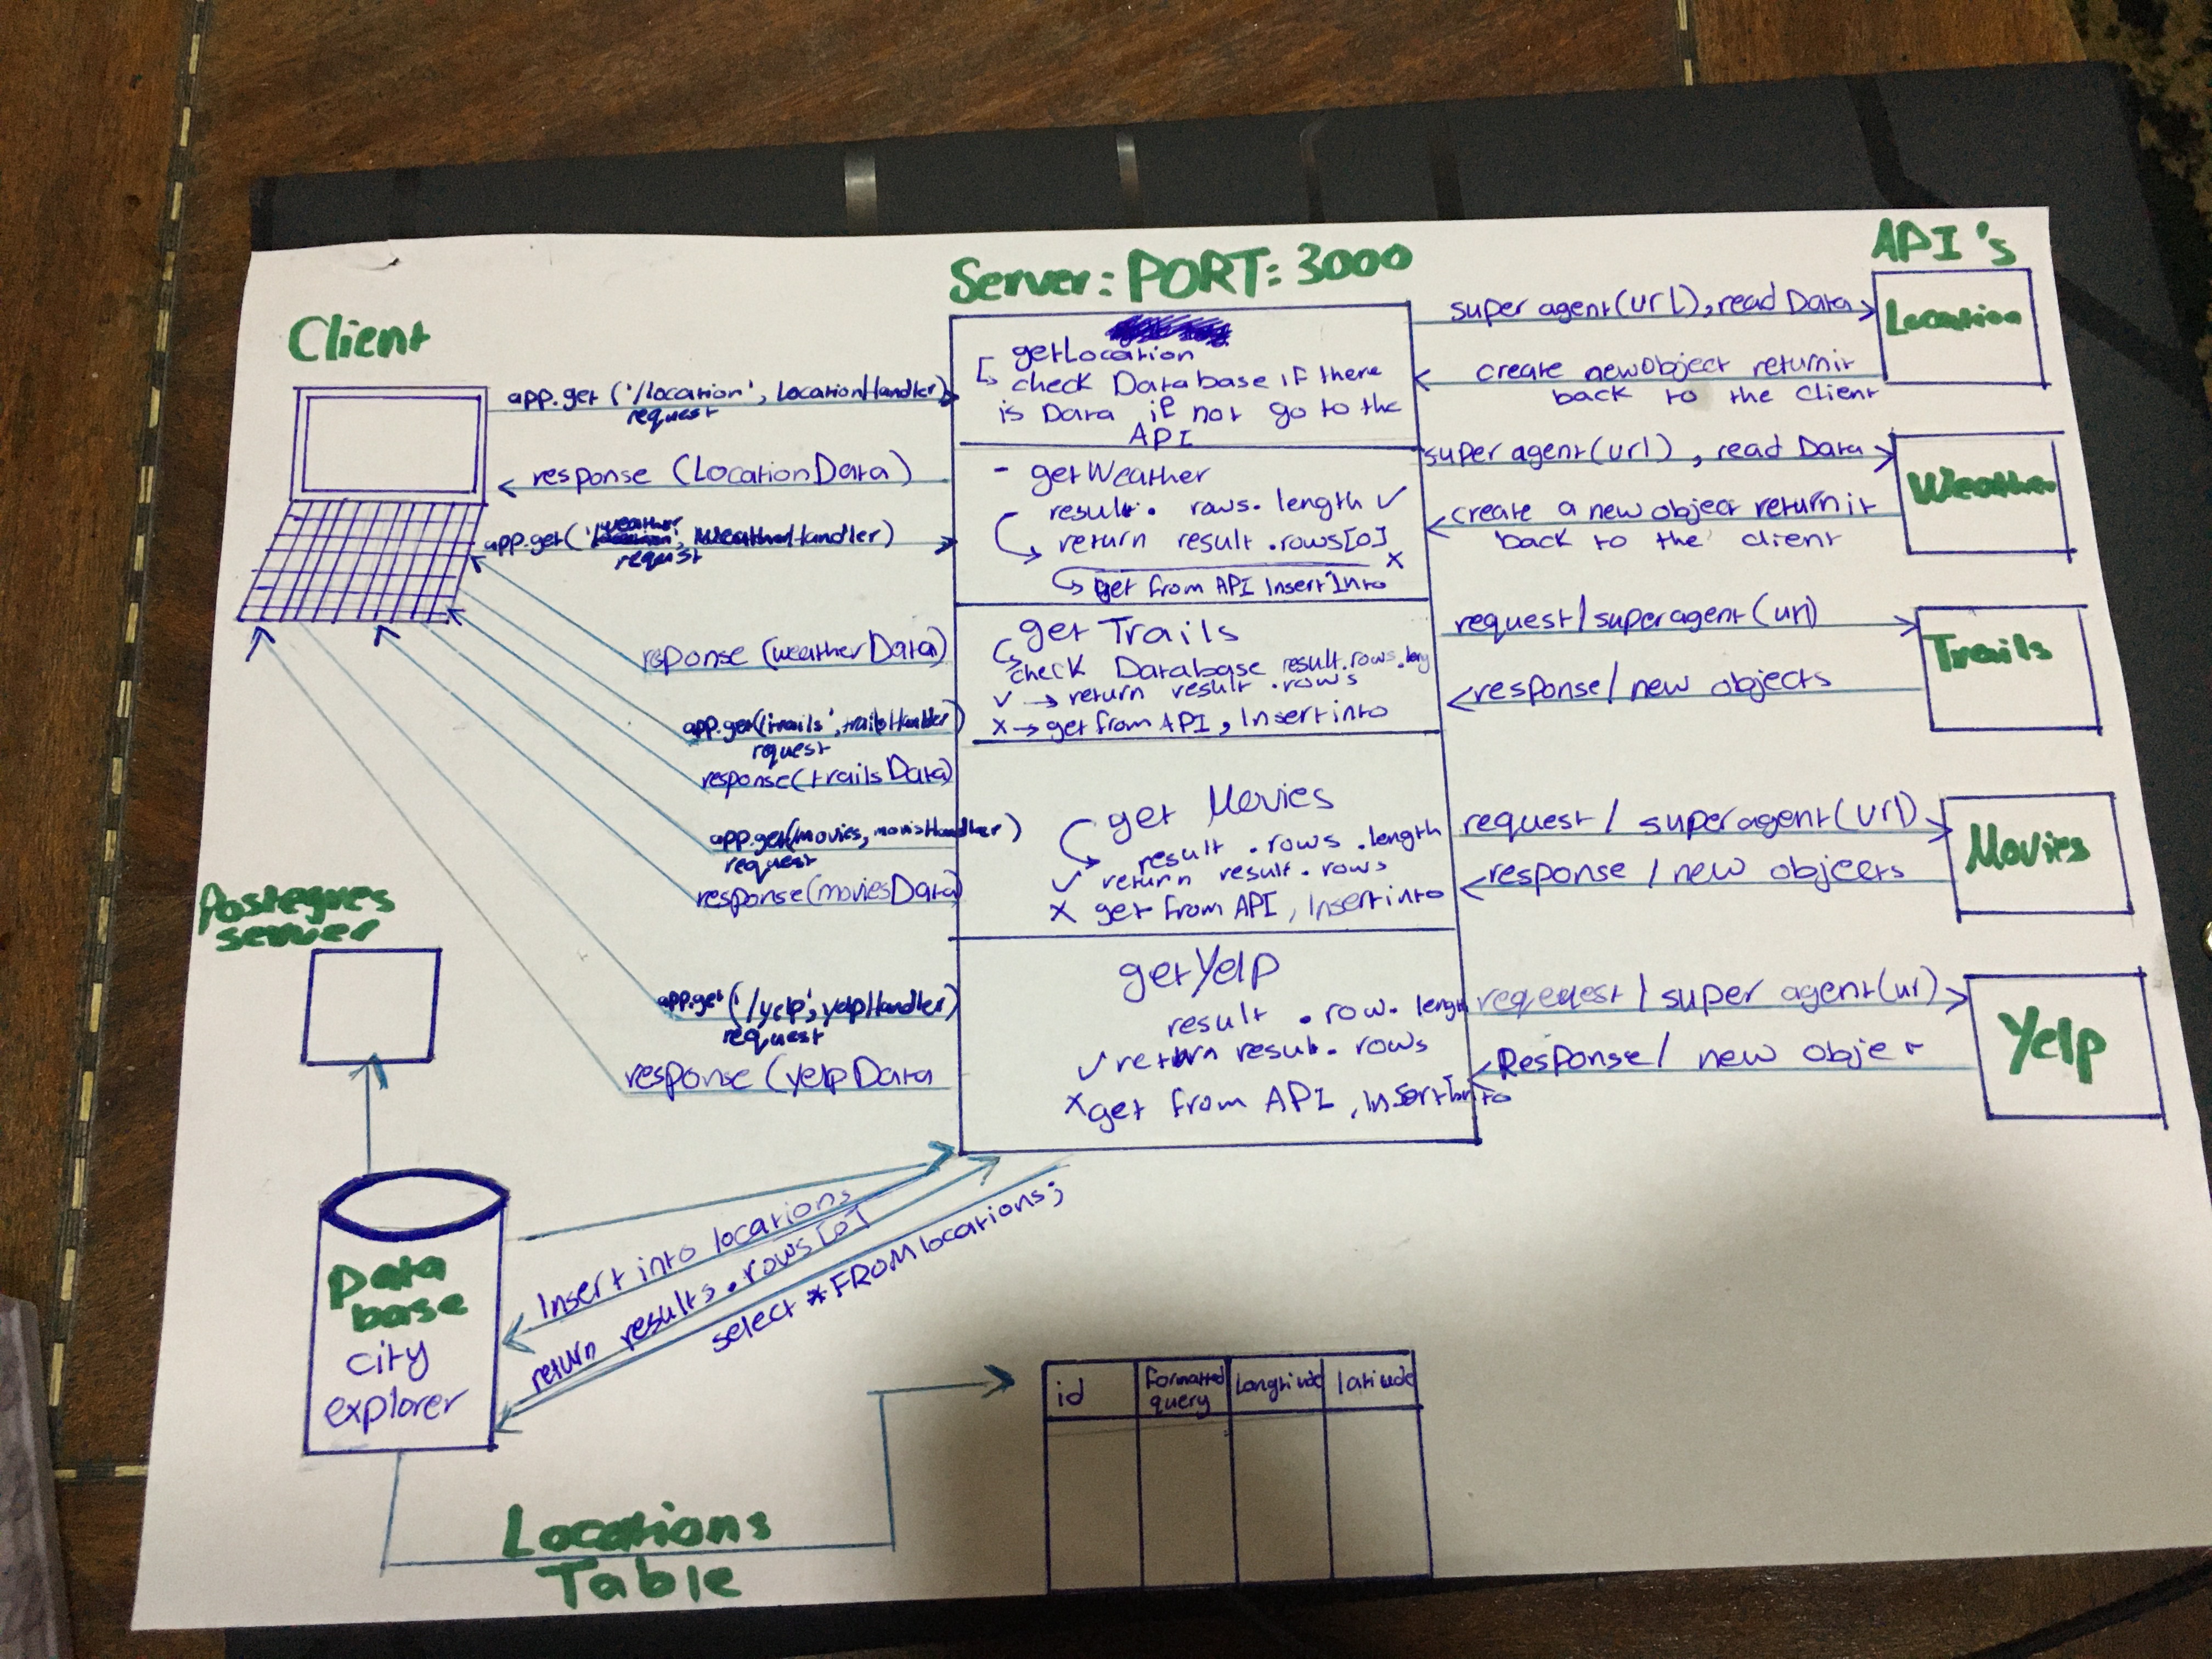 Server: PORT: 3000
API's
Client
app.get ('/location', LocationHandler)
request
response (LocationData)
app.get('/weather, WeatherHandler)
request
response (weatherData)
app.get(/trails', trailsHandler)
request
response(trailsData)
app.get(movies, moviesHandler)
request
response(moviesData)
app.get('/yelp', yelpHandler)
request
response (yelpData
getLocation
check Database if there
is Data if not go to the
API
- getWeather
result. rows. length ✓
return result .rows[0]
x
get from API Insert Into
get Trails
check Database result.rows.leng
✓ → return result .rows
x → get from API, Insert into
get Movies
result .rows .length
✓ return result. rows
x get from API, Insert into
getYelp
result .row. length
✓ return result. rows
x get from API, Insert Into
super agent(url), read Data
create newObject return it
back to the client
Location
super agent(url) , read Data
create a new object return it
back to the client
Weather
request/superagent(url)
response/ new objects
Trails
request / superagent(url)
response / new objects
Movies
reqequest / super agent(url)
Response/ new obje
Yelp
Postegres
server
Data
base
city
explorer
Insert into locations
return results.rows[0]
select * FROM locations;
Locations
Table
id
formatted
query
Longtitude
latitude